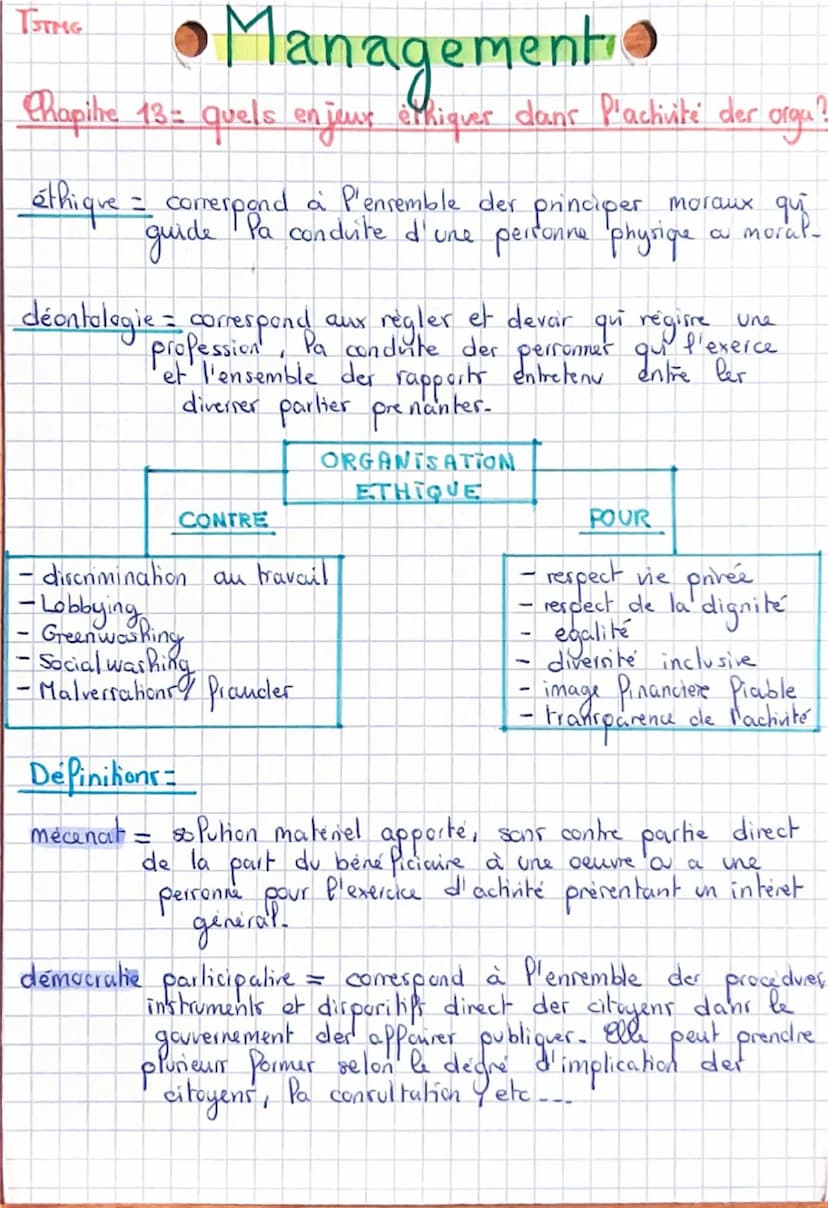 TSTMG
Management
Chapitre 13 = quels enjeux éthiques dans l'activité des orga?
éthique = correspond à l'ensemble des principes moraux qui
guide la conduite d'une personne physique ou moral.
déontologie = correspond aux règles et devoir qui régisse une
profession, la conduite des personnes qui l'exerce
et l'ensemble des rapports entretenu entre les
diverses parties prenantes.
ORGANISATION
ETHIQUE
CONTRE
- discrimination au travail
- Lobbying
- Greenwashing
- Social washing
- Malversations / fraudes
POUR
- respect vie privée
- respect de la dignité
- egalité
- diversité inclusive
- image financière fiable
- transparence de l'activité
Définitions =
mécenat = solution matériel apporté, sans contre partie direct
de la part du bénéficiaire à une oeuvre ou a une
personne pour l'exercice d'activité présentant un intéret
général.
démocratie participative = correspond à l'ensemble des procédures,
instruments et dispositifs direct des citoyens dans le
gouvernement des affaires publiques. Elle peut prendre
plusieurs formes selon le degré d'implication des
citoyens, la consultation, etc...